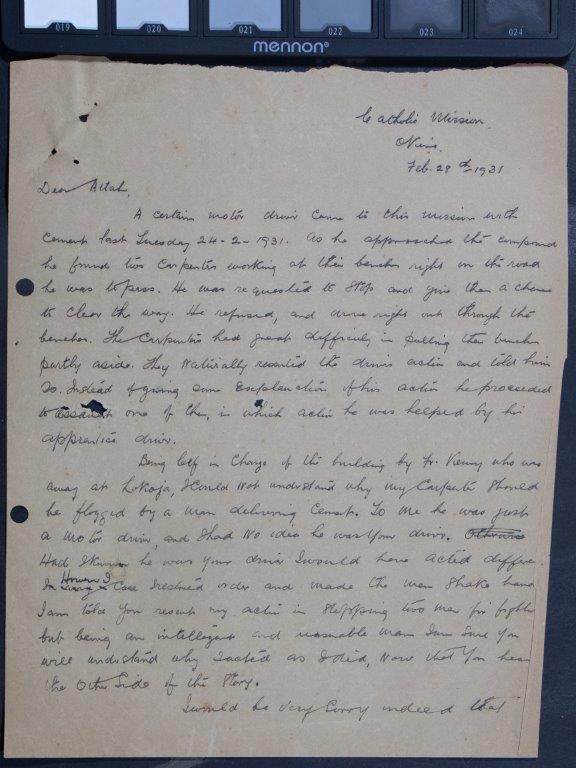 019 020 021 022 023 024
mennon®
Catholic Mission,
Feb. 28th 1931
Dear Attah,
A certain motor driver came to this mission with
cement last Tuesday 24-2-1931. As he approached the compound
he found two Carpenters working at their benches right on the road
he was to pass. He was requested to stop and give them a chance
to clear the way. He refused, and drove right out through the
benches. The Carpenters had great difficulty in pulling their benches
partly aside. They Naturally resented the drivers action and told him
so. Instead of giving some Explanation of his action he proceeded
to assault one of them, in which action he was helped by his
apprentice driver.
Being left in Charge of the building by Fr. Kenny who was
away at Lokoja, I Could Not understand why my Carpenter should
be flogged by a man delivering Cement. To me he was just
a motor driver, and I had No idea he was your driver. Otherwise
Had I known he was your driver I would have acted differen
In However I Case I restored order and made the men Shake hand
I am told you resent my action in stopping two men from fightin
but being an intelligent and reasonable man I am sure you
will understand why I acted as I did, Now that you hear
the Other Side of the Story.
I would be Very Sorry indeed that